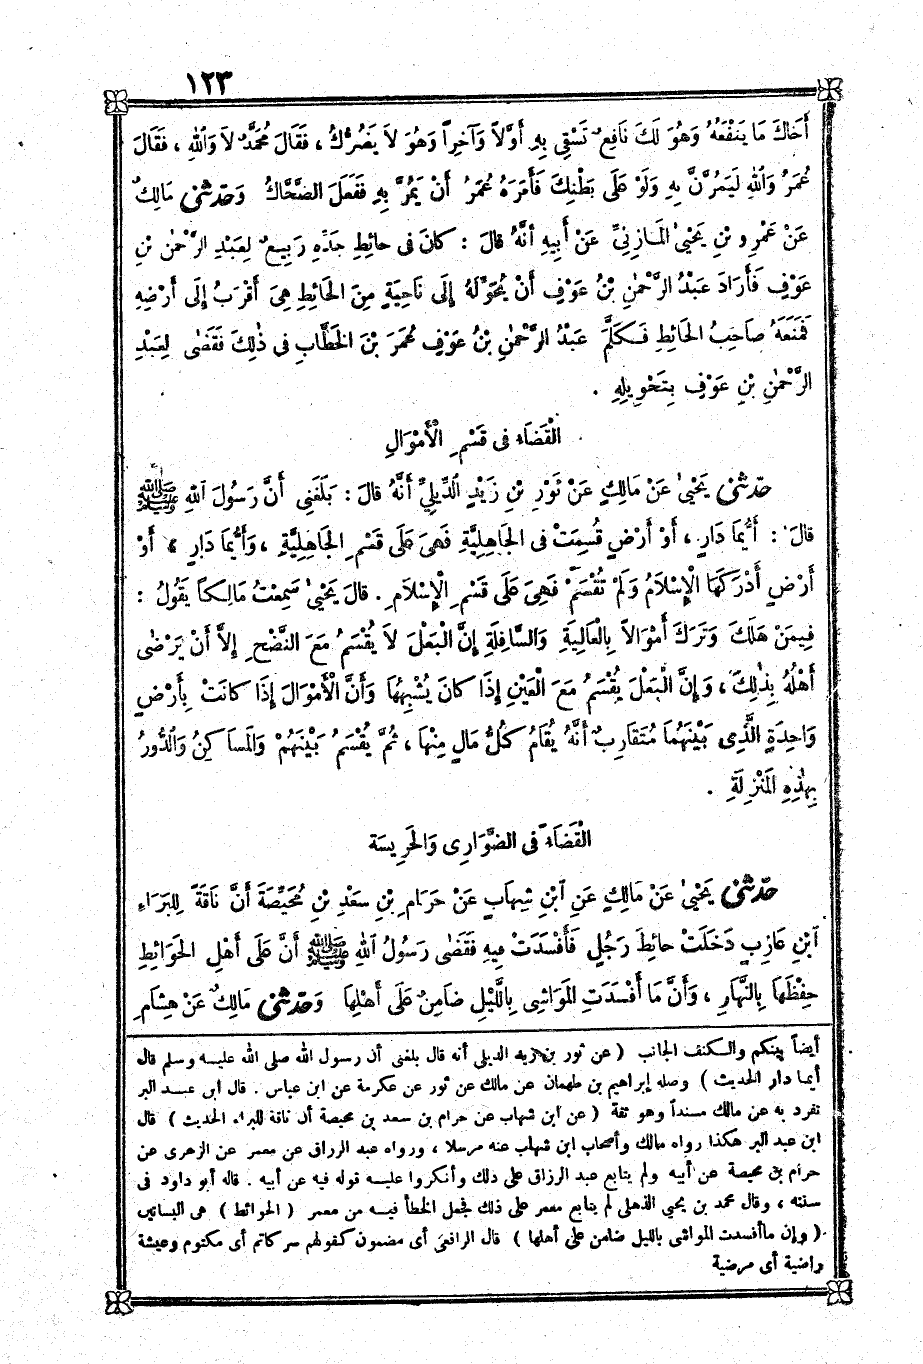 ١٢٣
أَخَاكَ مَا يَنْفَعُهُ وَهُوَ لَكَ نَافِعٌ تَسْقِي بِهِ أَوَّلاً وَآخِراً وَهُوَ لاَ يَضُرُّكَ ، فَقَالَ مُحَمَّدٌ لاَ وَاللهِ ، فَقَالَ
عُمَرُ وَاللهِ لَيَمُرَّنَّ بِهِ وَلَوْ عَلَى بَطْنِكَ فَأَمَرَهُ عُمَرُ أَنْ يَمُرَّ بِهِ فَفَعَلَ الضَّحَّاكُ وَحَدَّثَنِي مَالِكٌ
عَنْ عَمْرِو بْنِ يَحْيَى المَازِنِيِّ عَنْ أَبِيهِ أَنَّهُ قَالَ : كَانَ فى حَائِطِ جَدِّهِ رَبِيعٌ لِعَبْدِ الرَّحْمٰنِ بْنِ
عَوْفٍ فَأَرَادَ عَبْدُ الرَّحْمٰنِ بْنُ عَوْفٍ أَنْ يُحَوِّلَهُ إِلَى نَاحِيَةٍ مِنَ الحَائِطِ هِيَ أَقْرَبُ إِلَى أَرْضِهِ
فَمَنَعَهُ صَاحِبُ الحَائِطِ فَكَلَّمَ عَبْدُ الرَّحْمٰنِ بْنُ عَوْفٍ عُمَرَ بْنَ الخَطَّابِ فى ذٰلِكَ فَقَضَى لِعَبْدِ
الرَّحْمٰنِ بْنِ عَوْفٍ بِتَحْوِيلِهِ .
الْقَضَاءُ فى قَسْمِ الْأَمْوَالِ
حَدَّثَنِي يَحْيَى عَنْ مَالِكٍ عَنْ ثَوْرِ بْنِ زَيْدٍ الدِّيلِيِّ أَنَّهُ قَالَ : بَلَغَنِي أَنَّ رَسُولَ اللهِ ﷺ
قَالَ : أَيُّمَا دَارٍ ، أَوْ أَرْضٍ قُسِمَتْ فى الجَاهِلِيَّةِ فَهِىَ عَلَى قَسْمِ الجَاهِلِيَّةِ ، وَأَيُّمَا دَارٍ ، أَوْ
أَرْضٍ أَدْرَكَهَا الْإِسْلاَمُ وَلَمْ تُقْسَمْ فَهِىَ عَلَى قَسْمِ الْإِسْلاَمِ . قَالَ يَحْيَى سَمِعْتُ مَالِكاً يَقُولُ :
فِيمَنْ هَلَكَ وَتَرَكَ أَمْوَالاً بِالْعَالِيَةِ وَالسَّافِلَةِ إِنَّ الْبَعْلَ لاَ يُقْسَمُ مَعَ النَّضْحِ إِلاَّ أَنْ يَرْضَى
أَهْلُهُ بِذٰلِكَ ، وَإِنَّ الْبَعْلَ يُقْسَمُ مَعَ الْعَيْنِ إِذَا كَانَ يُشْبِهُهَا وَأَنَّ الْأَمْوَالَ إِذَا كَانَتْ بِأَرْضٍ
وَاحِدَةٍ الَّذِى بَيْنَهُمَا مُتَقَارِبٌ أَنَّهُ يُقَامُ كُلُّ مَالٍ مِنْهَا ، ثُمَّ يُقْسَمُ بَيْنَهُمْ وَالمَسَاكِنُ وَالدُّورُ
بِهٰذِهِ المَنْزِلَةِ .
الْقَضَاءُ فى الضَّوَارِى وَالحَرِيسَة
حَدَّثَنِي يَحْيَى عَنْ مَالِكٍ عَنِ ابْنِ شِهَابٍ عَنْ حَرَامِ بْنِ سَعْدِ بْنِ مُحَيِّصَةَ أَنَّ نَاقَةً لِلْبَرَاءِ
ابْنِ عَازِبٍ دَخَلَتْ حَائِطَ رَجُلٍ فَأَفْسَدَتْ فِيهِ فَقَضَى رَسُولُ اللهِ ﷺ أَنَّ عَلَى أَهْلِ الحَوَائِطِ
حِفْظَهَا بِالنَّهَارِ ، وَأَنَّ مَا أَفْسَدَتِ المَوَاشِى بِاللَّيْلِ ضَامِنٌ عَلَى أَهْلِهَا وَحَدَّثَنِي مَالِكٌ عَنْ هِشَامِ
أيضاً بينكم والكنف الجانب ( عن ثور بن زيد الديلى أنه قال بلغنى أن رسول الله صلى الله عليه وسلم قال
أيما دار الحديث ) وصله إبراهيم بن طهمان عن مالك عن ثور عن عكرمة عن ابن عباس . قال ابن عبد البر
تفرد به عن مالك مسنداً وهو ثقة ( عن ابن شهاب عن حرام بن سعد بن محيصة أن ناقة للبراء الحديث ) قال
ابن عبد البر هكذا رواه مالك وأصحاب ابن شهاب عنه مرسلا ، ورواه عبد الرزاق عن معمر عن الزهرى عن
حرام بن محيصة عن أبيه ولم يتابع عبد الرزاق على ذلك وأنكروا عليه قوله فيه عن أبيه . قاله أبو داود فى
سننه ، وقال محمد بن يحيى الذهلى لم يتابع معمر على ذلك فجعل الخطأ فيه من معمر ( الحوائط ) هى البساتين
( وإن ما أفسدت المواشى بالليل ضامن على أهلها ) قال الرافعى أى مضمون كقولهم سر كاتم أى مكتوم وعيشة
راضية أى مرضية